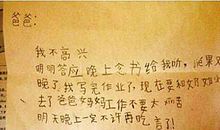 爸爸:
我不高兴
明明答应晚上念书给我听,结果又
晚了我写完作业了,现在要和奶奶睡
去了爸爸妈妈工作不要太辛苦
明天晚上一定不许再吃言了!